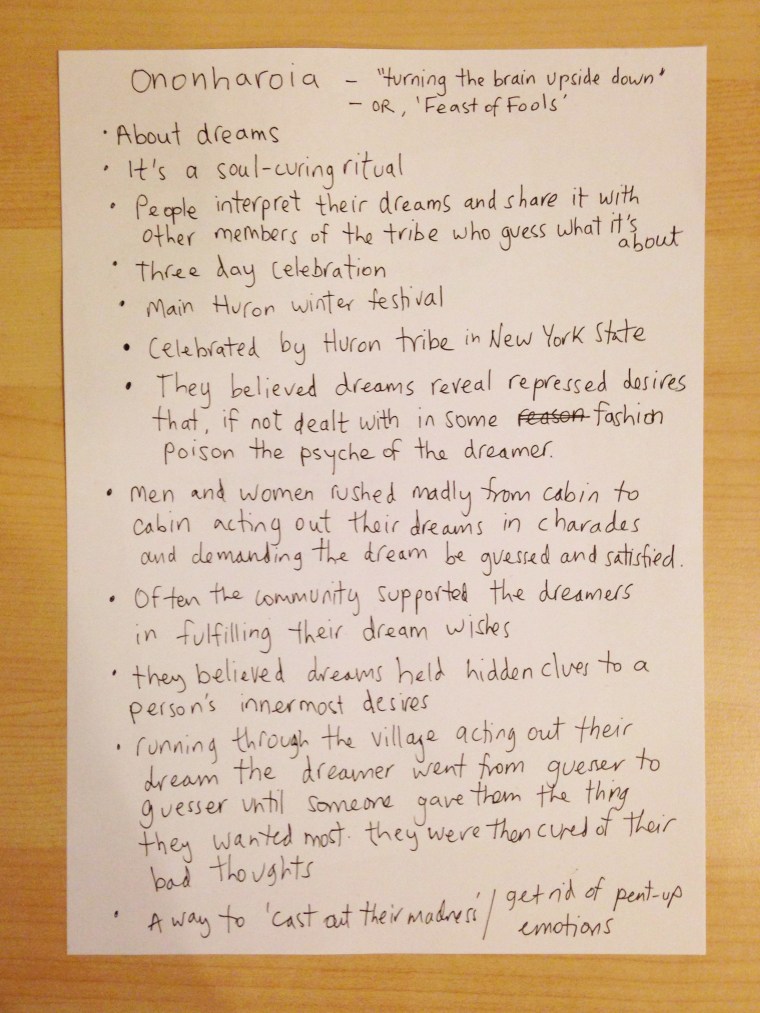 Ononharoia - "turning the brain upside down"
- OR, 'Feast of Fools'
• About dreams
• It's a soul-curing ritual
• People interpret their dreams and share it with
other members of the tribe who guess what it's
about
• Three day celebration
• Main Huron winter festival
• Celebrated by Huron tribe in New York State
• They believed dreams reveal repressed desires
that, if not dealt with in some reason fashion
poison the psyche of the dreamer.
• Men and women rushed madly from cabin to
cabin acting out their dreams in charades
and demanding the dream be guessed and satisfied.
• Often the community supported the dreamers
in fulfilling their dream wishes
• they believed dreams held hidden clues to a
person's innermost desires
• running through the village acting out their
dream the dreamer went from guesser to
guesser until someone gave them the thing
they wanted most. they were then cured of their
bad thoughts
• A way to 'cast out their madness' / get rid of pent-up
emotions